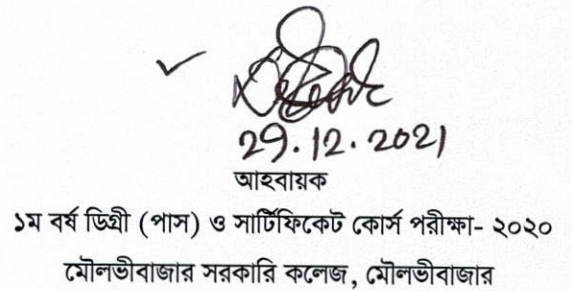 29.12.2021
আহবায়ক
১ম বর্ষ ডিগ্রী (পাস) ও সার্টিফিকেট কোর্স পরীক্ষা- ২০২০
মৌলভীবাজার সরকারি কলেজ, মৌলভীবাজার